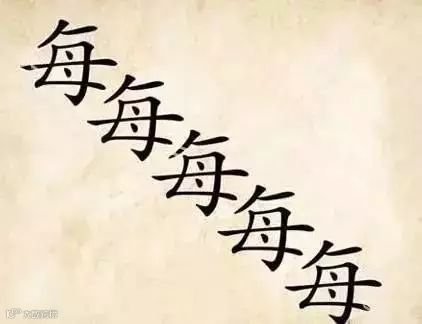 每
每
每
每
每